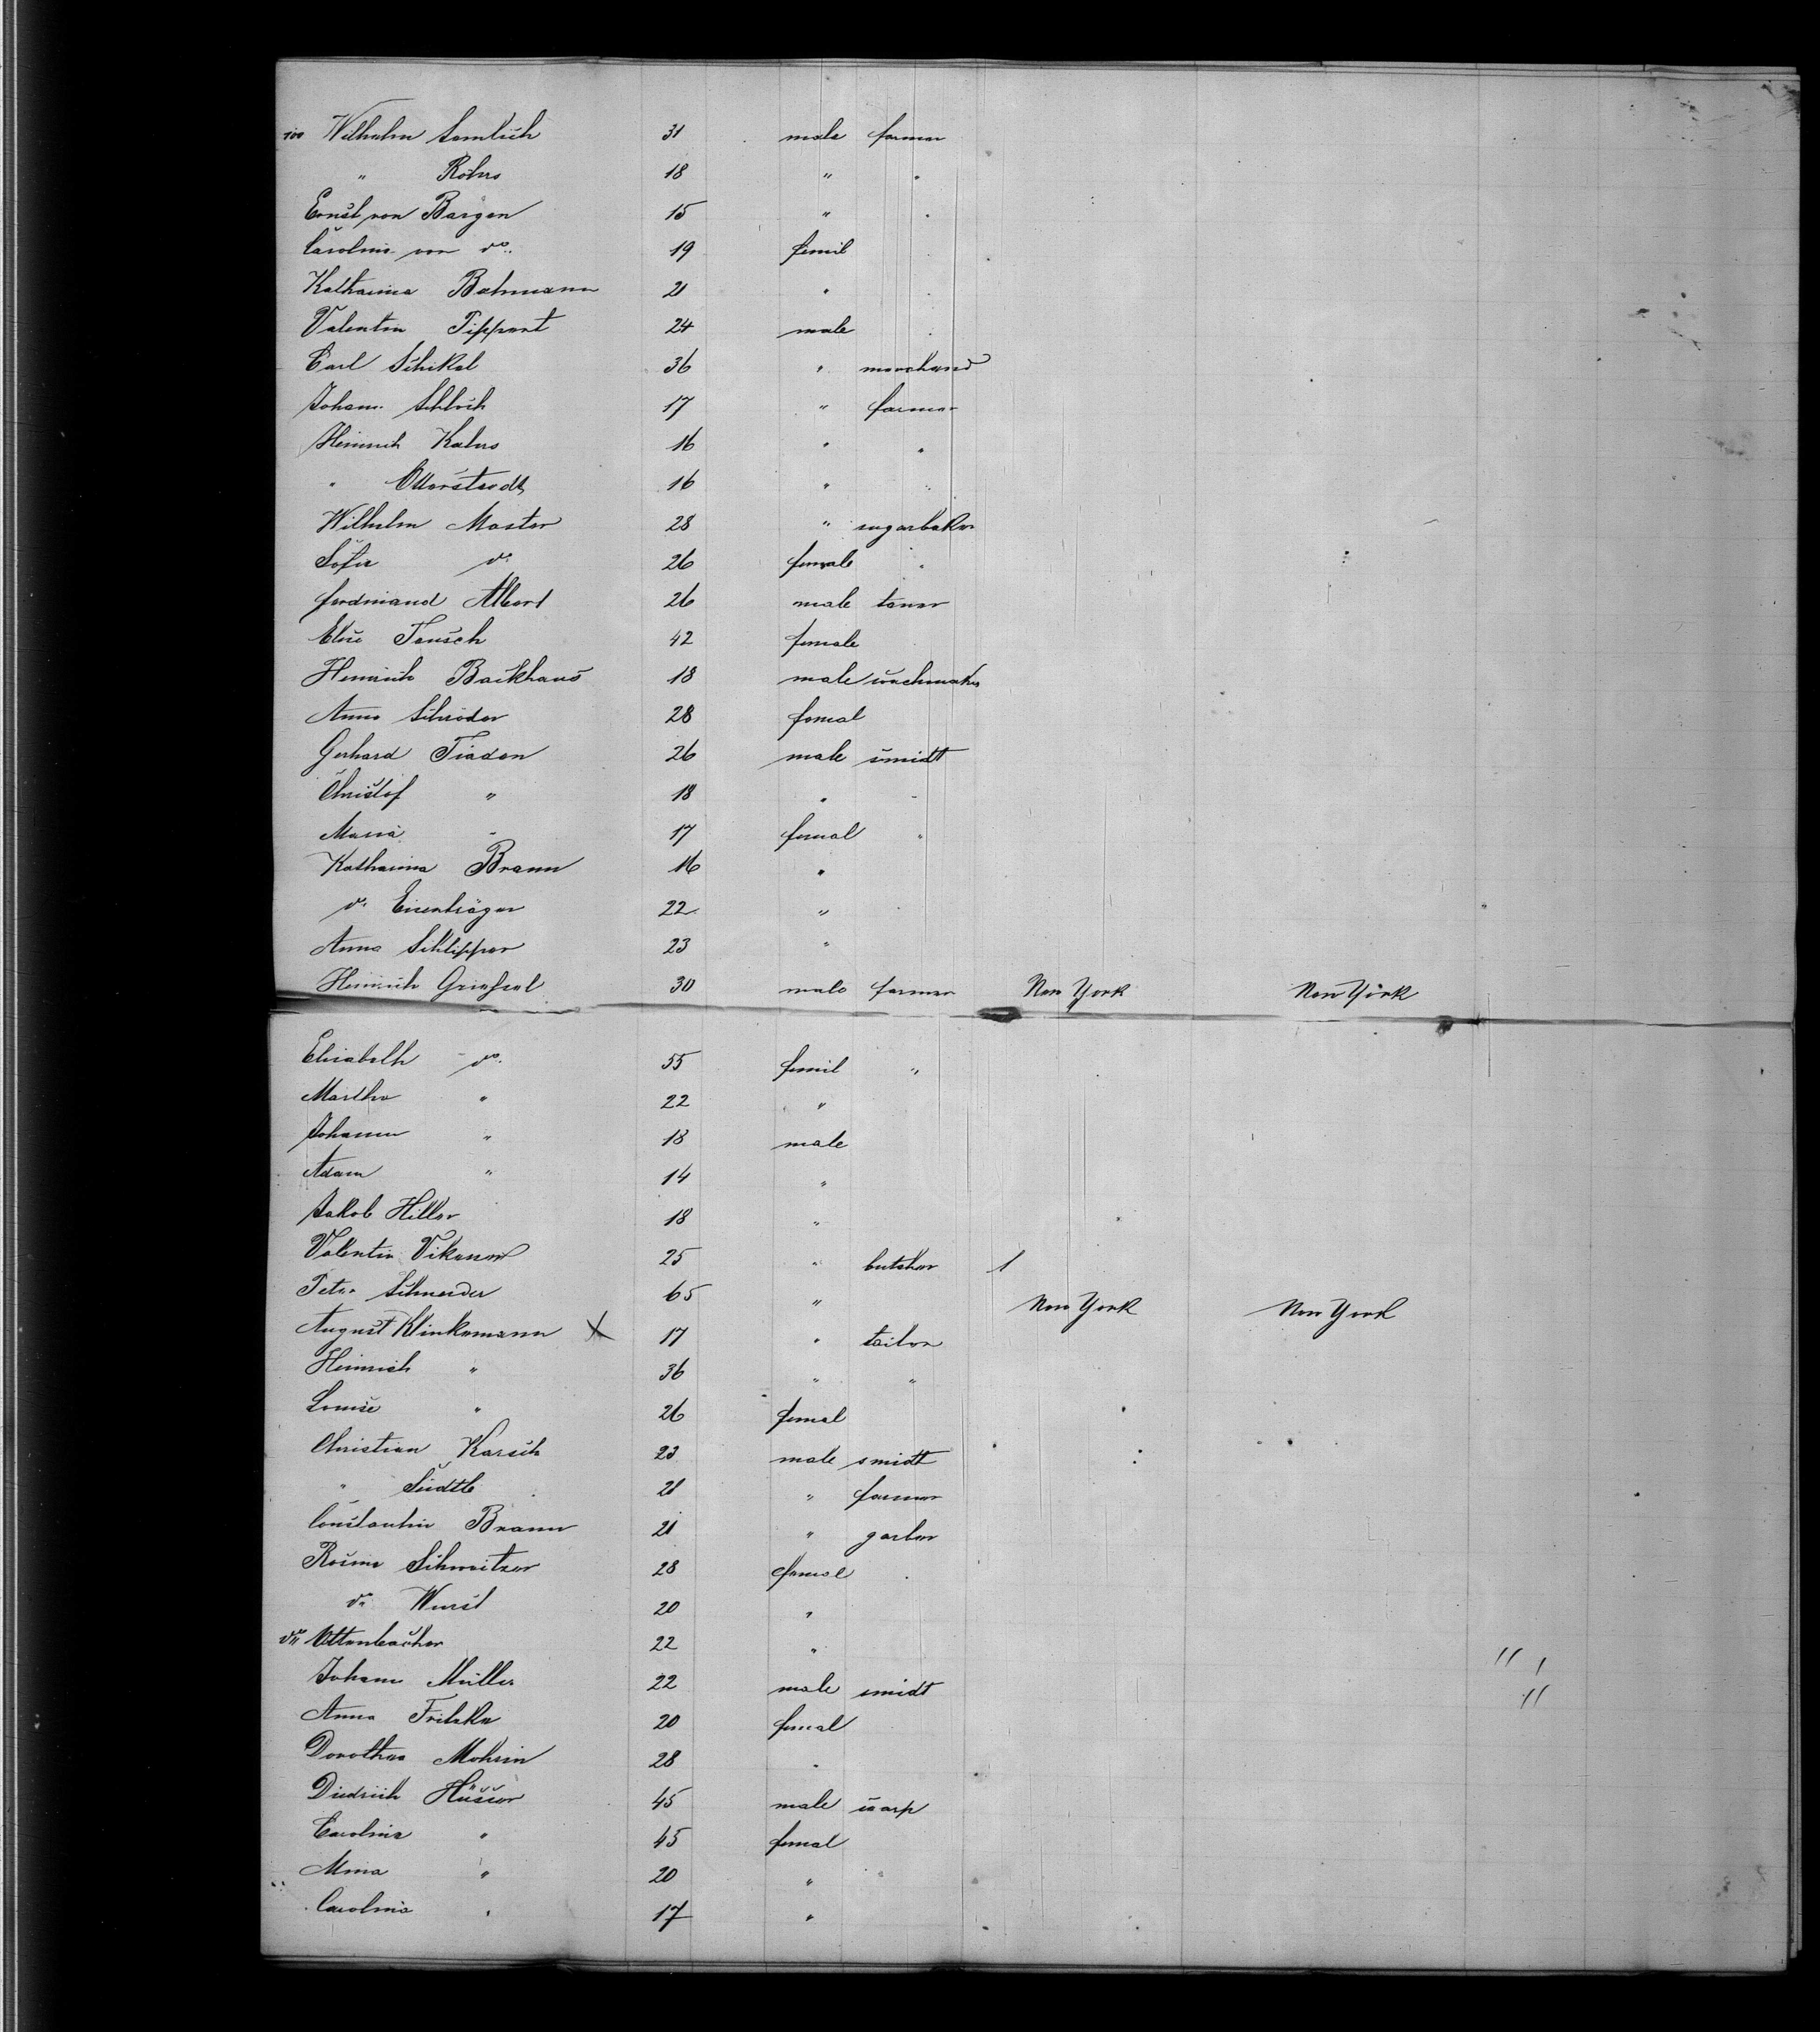 100 Wilhelm Semlich 31 male farmer
" Röhrs 18 " "
Ernst von Bargen 15 " "
Carolina von do. 19 femil
Katharina Bahmann 21 "
Valentin Tippart 24 male
Carl Schikel 36 " marchand
Johann Schloh 17 " farmer
Heinrich Kahrs 16 " "
" Otterstaedt 16 " "
Wilhelm Master 28 " sugarbaker
Sofia do 26 female "
Ferdinand Albert 26 male taner
Elise Tausch 42 female
Heinrich Backhaus 18 male wachmaker
Anna Schröder 28 femal
Gerhard Tiaden 26 male smidt
Christof " 18 " "
Maria " 17 femal "
Katharina Braun 16 "
do Eisenträger 22 "
Anna Schlipper 23 "
Heinrich 30 male farmer New York New York
Elisabeth do. 55 femil "
Martha " 22 "
Johann " 18 male
Adam " 14 "
Jakob Hiller 18 "
Valentin 25 " butcher 1
Peter Schneider 65 " New York New York
August Klinkemann X 17 " tailor
Heinrich " 36 " "
Louise " 26 femal
Christian Karsch 23 male smidt
" Südtle 21 " farmer
Constantin Braun 21 " garber
Rosina Schweitzer 28 femal
do Wurst 20 "
do Ottenbacher 22 "
Johann Müller 22 male smidt
Anna Fritzke 20 femal
Dorothea Mohrin 28 "
Diedrich Hüsser 45 male
Carolina " 45 femal
Mina " 20 "
Carolina " 17 "